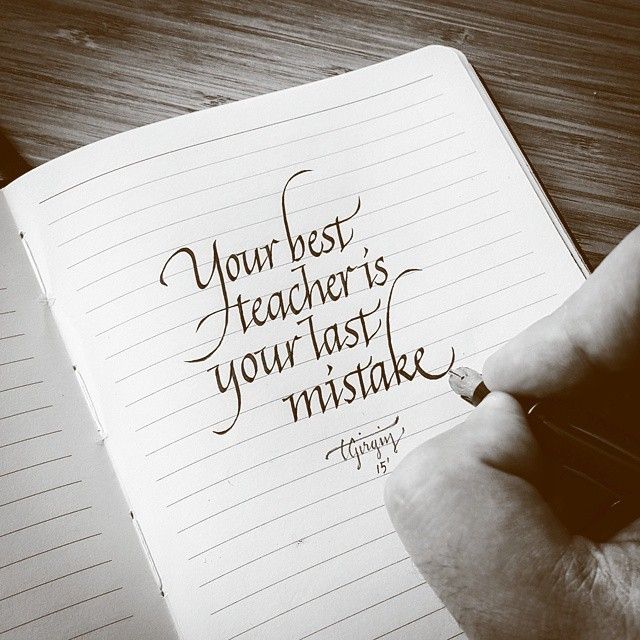 Your best
teacher is
your last
mistake
TGirgin
15'